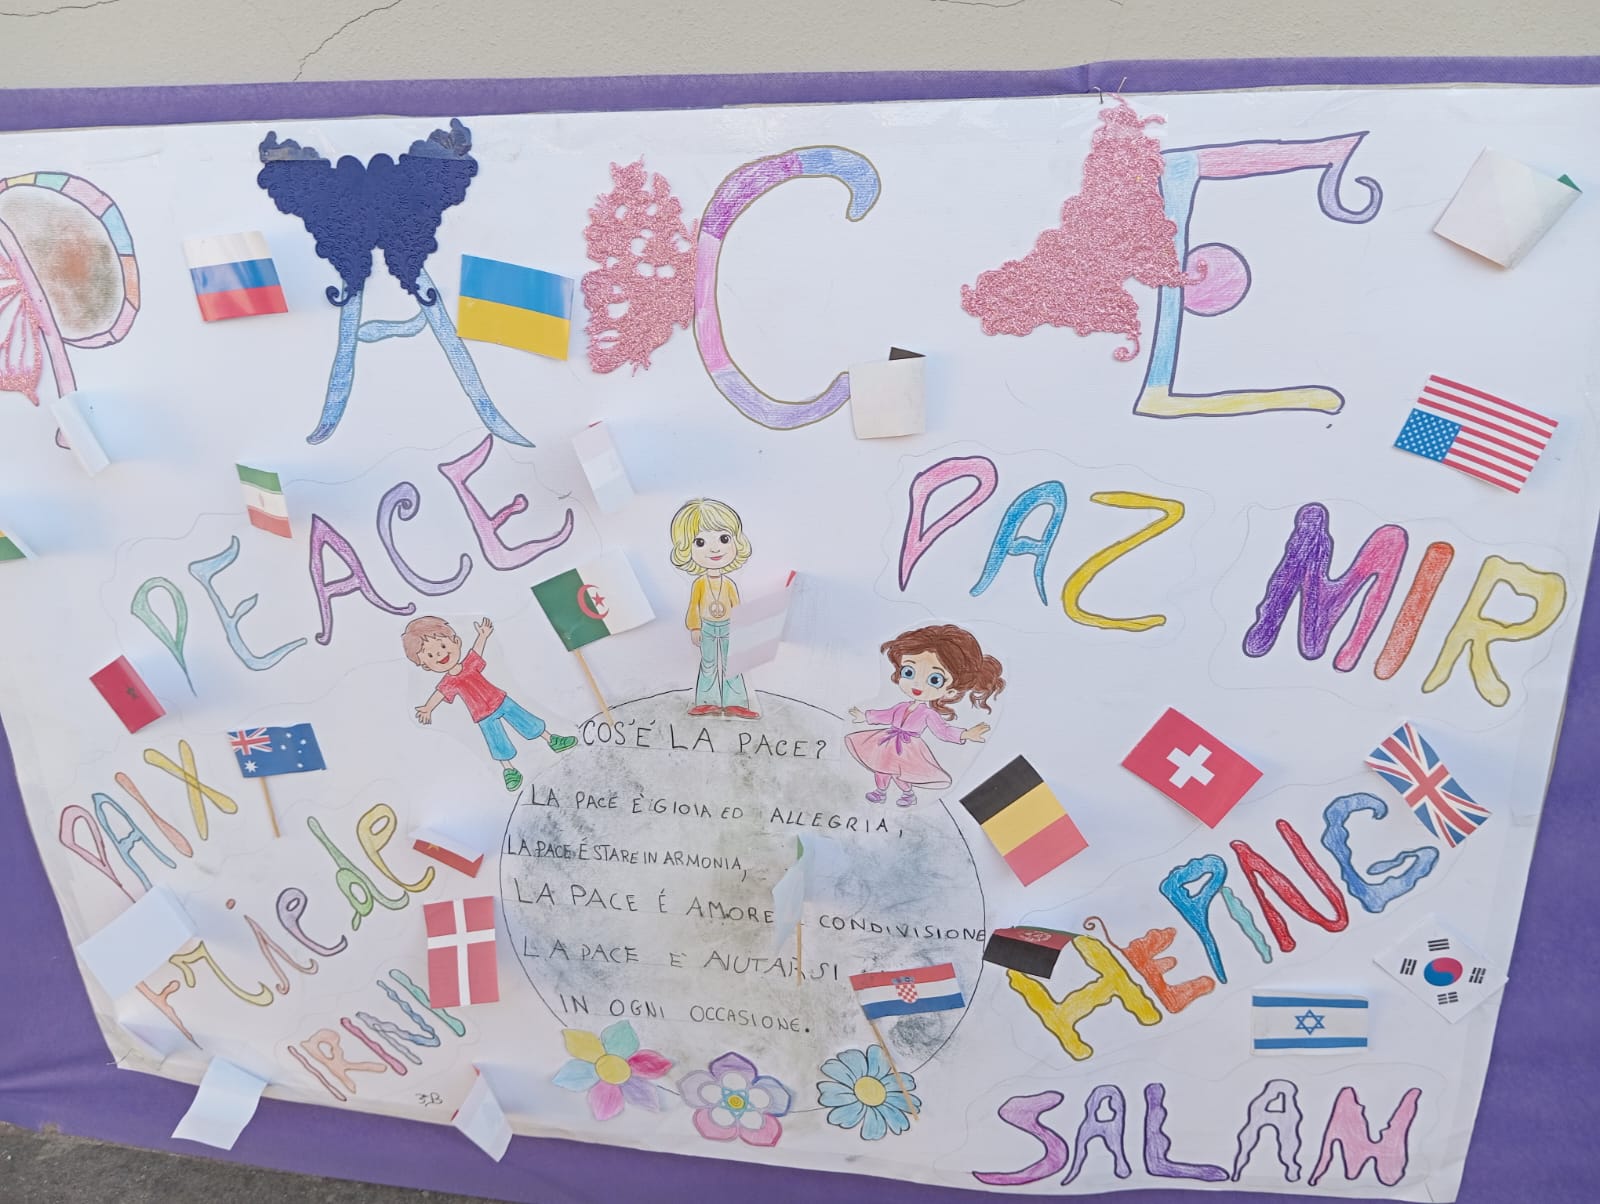 PACE
PEACE
PAZ
MIR
PAIX
COS'É LA PACE?
LA PACE È GIOIA ED ALLEGRIA,
LA PACE É STARE IN ARMONIA,
LA PACE É AMORE CONDIVISIONE
LA PACE E' AIUTARSI
IN OGNI OCCASIONE.
Friede
HEPING
IRINI
3B
SALAN